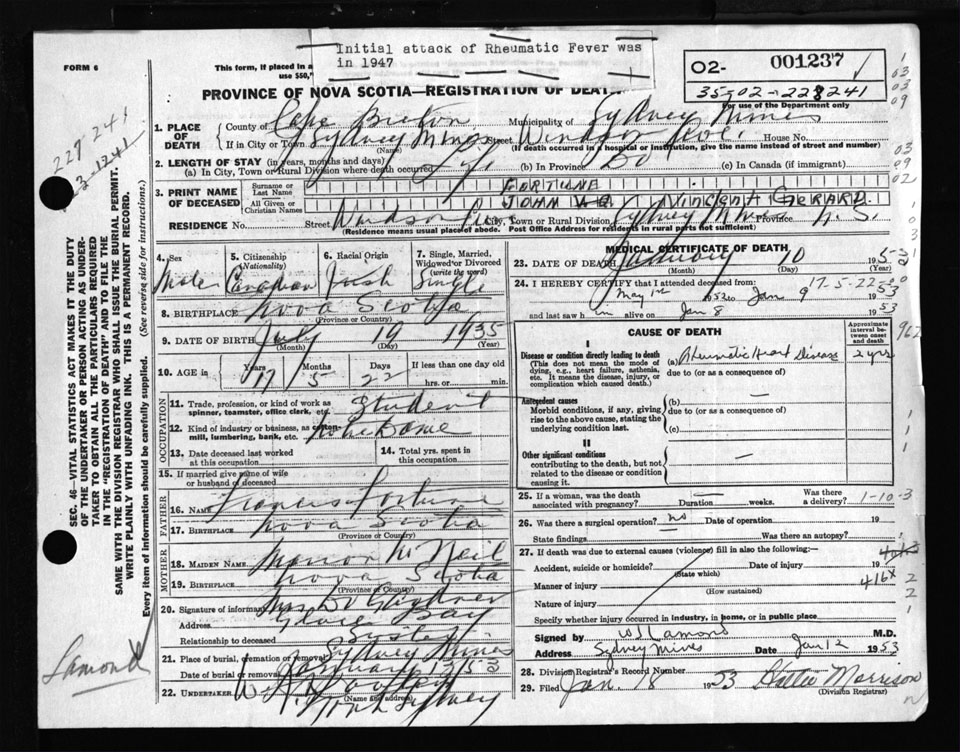 Initial attack of Rheumatic Fever was
in 1947
FORM 6
This form, if placed in a
use $50,"
02- 001237
35-02-228241
For use of the Department only
PROVINCE OF NOVA SCOTIA—REGISTRATION OF DEATH
1. PLACE OF DEATH
County of Cape Breton Municipality of Sydney Mines
If in City or Town Sydney Mines Street Windsor House No.
(Name) (If death occurred in a hospital or institution, give the name instead of street and number)
2. LENGTH OF STAY (in years, months and days)
(a) In City, Town or Rural Division where death occurred (b) In Province Do (c) In Canada (if immigrant)
3. PRINT NAME OF DECEASED
Surname or Last Name FORTUNE
All Given or Christian Names JOHN Vincent GERARD.
RESIDENCE No. Street Windsor City, Town or Rural Division Sydney Mines Province N.S.
(Residence means usual place of abode. Post Office Address for residents in rural parts not sufficient)
4. Sex Male
5. Citizenship (Nationality) Canadian
6. Racial Origin Irish
7. Single, Married, Widowed or Divorced (write the word) Single
8. BIRTHPLACE Nova Scotia
(Province or Country)
9. DATE OF BIRTH July 19 1935
(Month) (Day) (Year)
10. AGE in Years 17 Months 5 Days 22 If less than one day old
hrs. or min.
OCCUPATION
11. Trade, profession, or kind of work as spinner, teamster, office clerk, etc. Student
12. Kind of industry or business, as cotton-mill, lumbering, bank, etc. Notre Dame
13. Date deceased last worked at this occupation
14. Total yrs. spent in this occupation
15. If married give name of wife or husband of deceased
FATHER
16. NAME Francis Fortune
17. BIRTHPLACE Nova Scotia
(Province or Country)
MOTHER
18. MAIDEN NAME McNeil
19. BIRTHPLACE Nova Scotia
(Province or Country)
20. Signature of informant Mrs
Address Glace Bay
Relationship to deceased Sister
21. Place of burial, cremation or removal Sydney Mines
Date of burial January
22. UNDERTAKER
North Sydney
(Name and address)
MEDICAL CERTIFICATE OF DEATH
23. DATE OF DEATH January 10 1953
(Month) (Day) (Year)
24. I HEREBY CERTIFY that I attended deceased from:
May 1st 1952 to Jan 9 1953
17-5-22
and last saw him alive on Jan 8 1953
CAUSE OF DEATH
Approximate interval between onset and death
I
Disease or condition directly leading to death (a) Rheumatic Heart Disease 2 yrs
(This does not mean the mode of dying, e.g., heart failure, asthenia, etc. It means the disease, injury, or complication which caused death.)
due to (or as a consequence of)
Antecedent causes (b) —
Morbid conditions, if any, giving rise to the above cause, stating the underlying condition last.
due to (or as a consequence of)
(c)
II
Other significant conditions
contributing to the death, but not related to the disease or condition causing it. —
25. If a woman, was the death associated with pregnancy? Duration weeks. Was there a delivery? 1-10-3
26. Was there a surgical operation? no Date of operation 19
State findings Was there an autopsy?
27. If death was due to external causes (violence) fill in also the following:—
Accident, suicide or homicide? Date of injury 19
(State which)
Manner of injury 416X
(How sustained)
Nature of injury
Specify whether injury occurred in industry, in home, or in public place
Signed by W S Lamond M.D.
Address Sydney Mines Date Jan 12 1953
28. Division Registrar's Record Number
29. Filed Jan. 18 1953 Hattie Morrison
(Division Registrar)
SEC. 46—VITAL STATISTICS ACT MAKES IT THE DUTY
OF THE UNDERTAKER OR PERSON ACTING AS UNDER-
TAKER TO OBTAIN ALL THE PARTICULARS REQUIRED
IN THE "REGISTRATION OF DEATH" AND TO FILE THE
SAME WITH THE DIVISION REGISTRAR WHO SHALL ISSUE THE BURIAL PERMIT.
WRITE PLAINLY WITH UNFADING INK. THIS IS A PERMANENT RECORD.
Every item of information should be carefully supplied. (See reverse side for instructions.)
Lamond